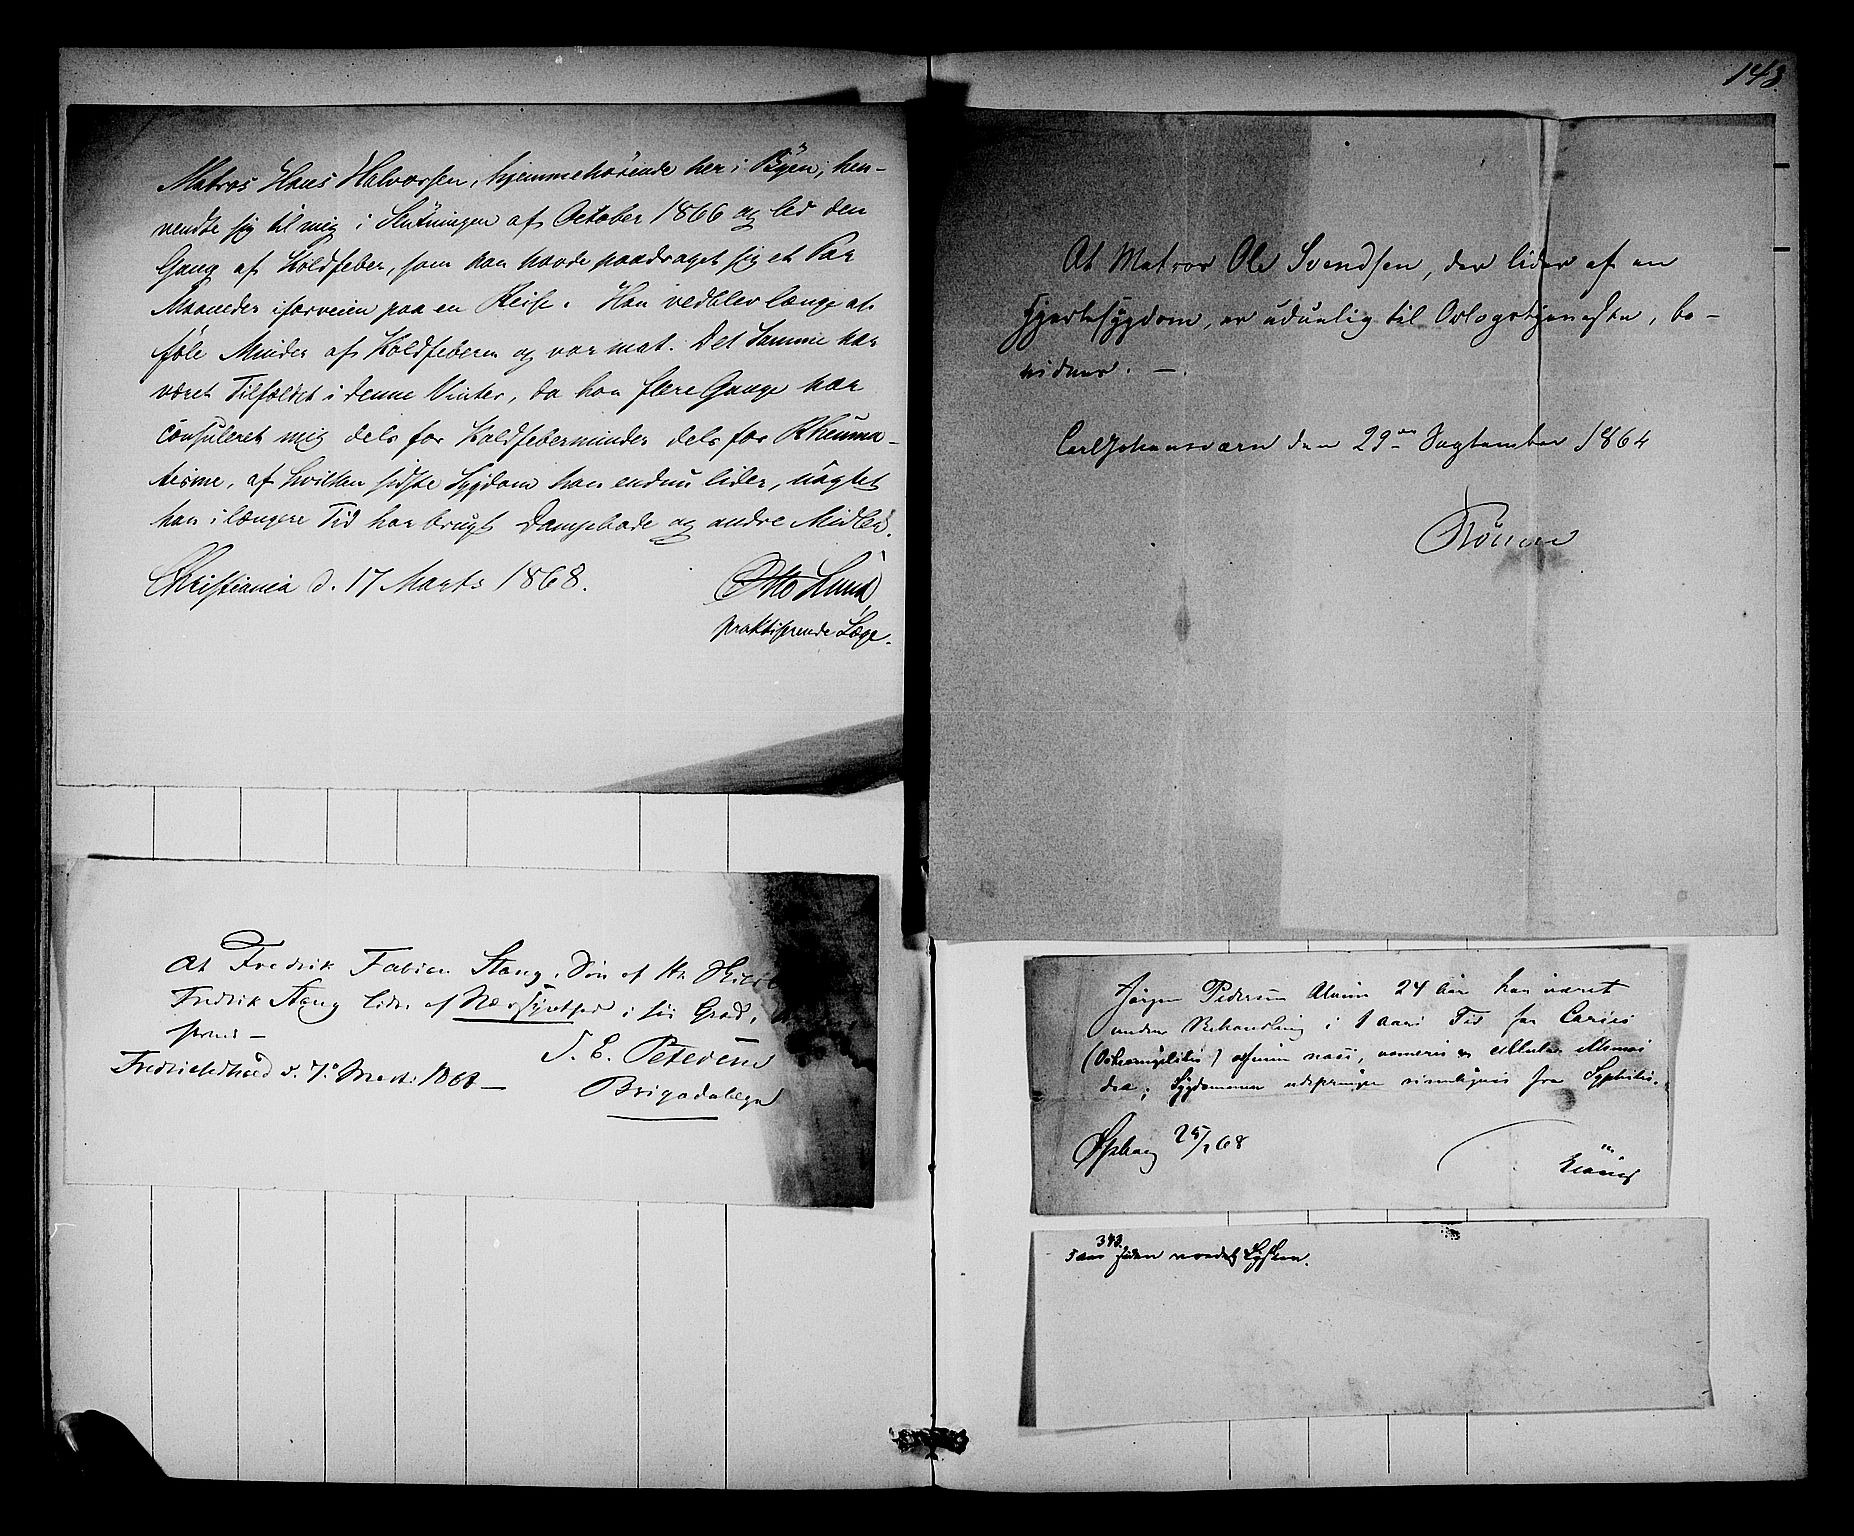 Matros Hans Halvorsen, hjemmehørende her i Byen, hen-
vendte sig til mig i Slutningen af October 1866 og led den
Gang af Koldfeber, som han havde paadraget sig et Par
Maaneder iforveien paa en Reise. Han vedblev længe at
føle Minder af Koldfeberen og var mat. Det Samme har
været Tilfældet i denne Vinter, da han flere Gange har
consuleret mig dels for Koldfeberminder dels for Rheuma-
tisme, af hvilken sidste Sygdom han endnu lider, uagtet
han i længere Tid har brugt Dampbade og andre Midler.
Christiania d. 17 Marts 1868.
Otto Lund
praktiserende Læge.
At Fredrik Fabian Stang, Søn af Hr
Fredrik Stang lider af Nærsynethed i høi Grad,
Fredrikshald d. 7de Marts 1868
S. E. Petersen
Brigadelæge
148
At Matros Ole Svendsen, der lider af en
Hjertesygdom, er udu­elig til Orlogstjeneste, be-
vidnes. —
Carljohansværn den 29de September 1864
Jørgen Pedersen 24 Aar har været
under Behandling i 1 Aars Tid for Caries
ossium nasi, vomeris
Sygdommen udspringer fra Syphilis.
25/2 68
343.
5 Aar siden